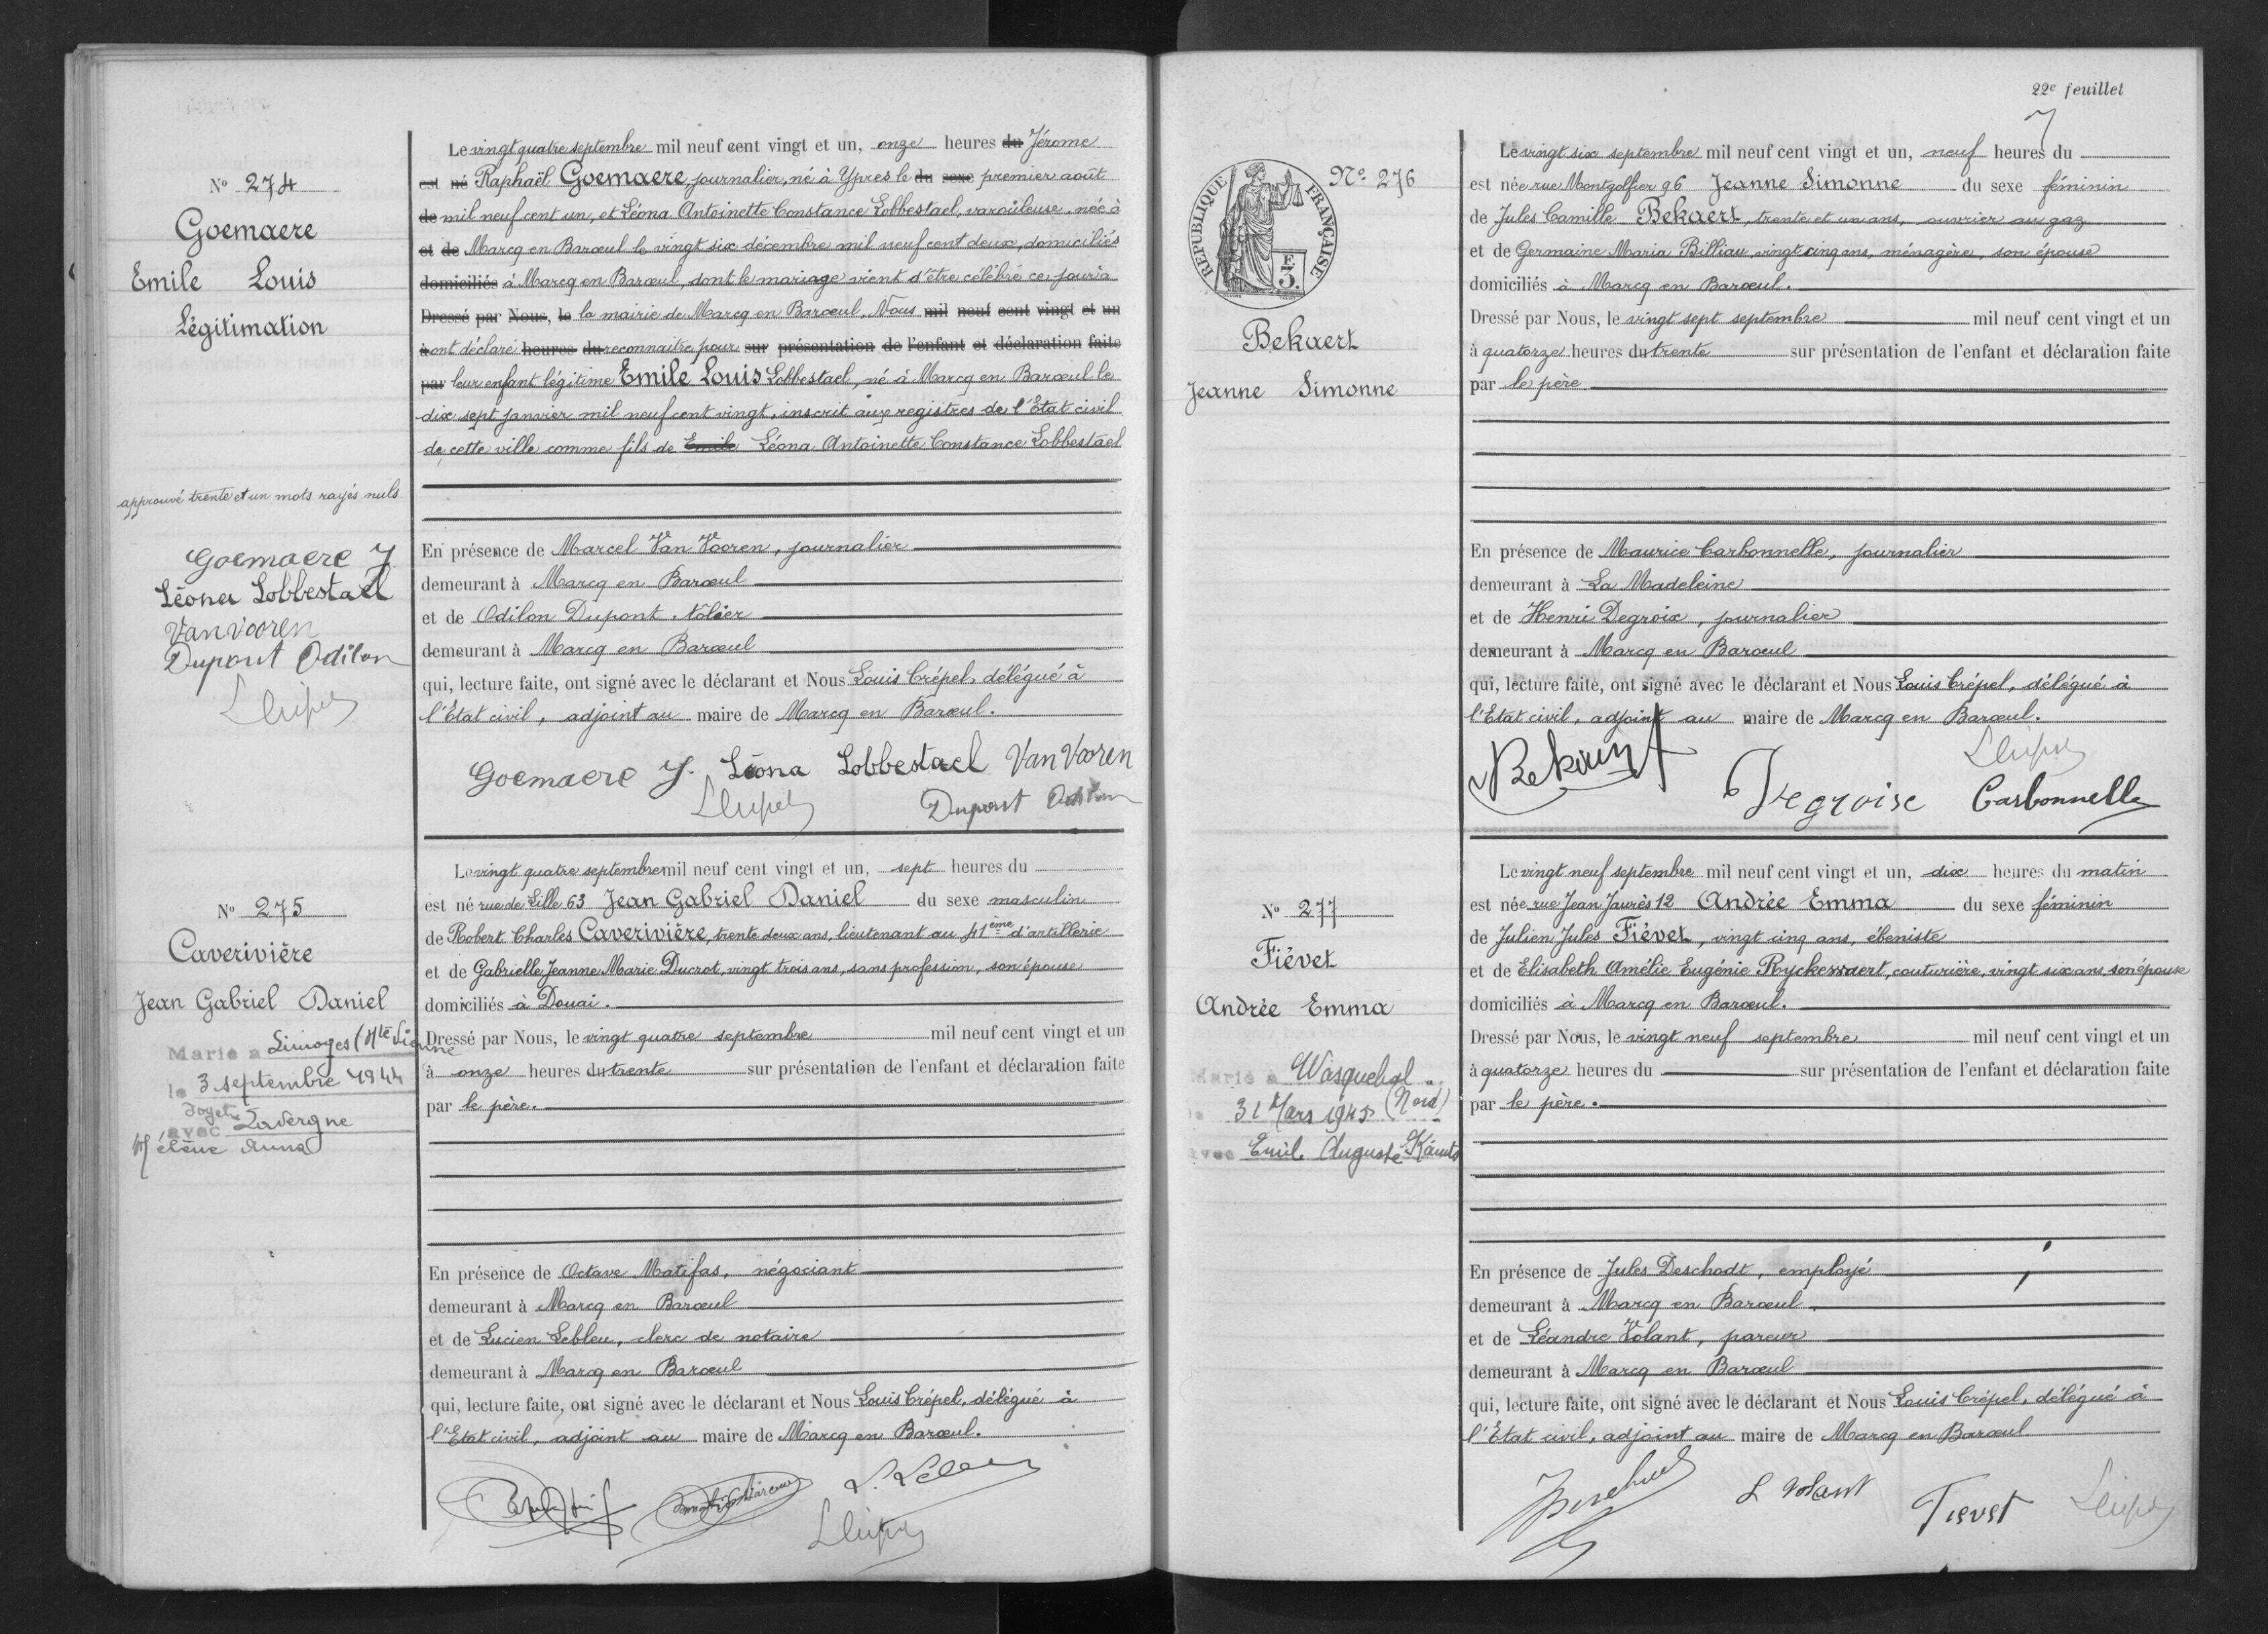 Nº 274
Goemaere
Emile Louis
Légitimation
approuvé trente et un mots rayés nuls
Goemaere J.
Léona Lobbestael
Van Vooren
Dupont Odilon
Le vingt quatre septembre mil neuf cent vingt et un, onze heures du Jérome
est né Raphaël Goemaere, journalier, né à Ypres le du sexe premier août
de mil neuf cent un, et Léona Antoinette Constance Lobbestael, varouleuse, née à
et de Marcq en Barœul le vingt six décembre mil neuf cent deux, domiciliés
domiciliés à Marcq en Barœul, dont le mariage vient d'être célébré ce jour à
Dressé par Nous, le la mairie de Marcq en Barœul, Nous mil neuf cent vingt et un
à ont déclaré heures du reconnaitre pour sur présentation de l'enfant et déclaration faite
par leur enfant légitime Emile Louis Lobbestael, né à Marcq en Barœul le
dix sept janvier mil neuf cent vingt, inscrit aux registres de l'Etat civil
de cette ville comme fils de Emile Léona Antoinette Constance Lobbestael
En présence de Marcel Van Vooren, journalier
demeurant à Marcq en Barœul
et de Odilon Dupont
demeurant à Marcq en Barœul
qui, lecture faite, ont signé avec le déclarant et Nous Louis Crépel, délégué à
l'Etat civil, adjoint au maire de Marcq en Barœul.
Goemaere J. Léona Lobbestael Van Vooren
LCrépel Dupont Odilon
Nº 275
Caverivière
Jean Gabriel Daniel
Marié à Limoges (Hte Vienne
le 3 septembre 1944
avec Lavergne
Anna
Le vingt quatre septembre mil neuf cent vingt et un, sept heures du
est né rue de Lille 63 Jean Gabriel Daniel du sexe masculin
de Robert Charles Caverivière, trente deux ans, lieutenant au 41ème d'artillerie
et de Gabrielle Jeanne Marie Ducrot, vingt trois ans, sans profession, son épouse
domiciliés à Douai.
Dressé par Nous, le vingt quatre septembre mil neuf cent vingt et un
à onze heures du trente sur présentation de l'enfant et déclaration faite
par le père.
En présence de Octave Matifas, négociant
demeurant à Marcq en Barœul
et de Lucien Lebleu, clerc de notaire
demeurant à Marcq en Barœul
qui, lecture faite, ont signé avec le déclarant et Nous Louis Crépel, délégué à
l'Etat civil, adjoint au maire de Marcq en Barœul.
L. Lebleu
LCrépel
22e feuillet
RÉPUBLIQUE FRANÇAISE
F
3.
Nº 276
Bekaert
Jeanne Simonne
Le vingt six septembre mil neuf cent vingt et un, neuf heures du
est née rue Montgolfier 96 Jeanne Simonne du sexe féminin
de Jules Camille Bekaert, trente et un ans, ouvrier au gaz
et de Germaine Maria Billiau, vingt cinq ans, ménagère, son épouse
domiciliés à Marcq en Barœul.
Dressé par Nous, le vingt sept septembre mil neuf cent vingt et un
à quatorze heures du trente sur présentation de l'enfant et déclaration faite
par le père
En présence de Maurice Carbonnelle, journalier
demeurant à La Madeleine
et de Henri Degroix, journalier
demeurant à Marcq en Barœul
qui, lecture faite, ont signé avec le déclarant et Nous Louis Crépel, délégué à
l'Etat civil, adjoint au maire de Marcq en Barœul.
Bekaert LCrépel
Carbonnelle
Nº 277
Fiévet
Andrée Emma
Marié à Wasquehal
le 31 Mars 1945 (Nord)
avec Emile Auguste
Le vingt neuf septembre mil neuf cent vingt et un, dix heures du matin
est née rue Jean Jaurès 12 Andrée Emma du sexe féminin
de Julien Jules Fiévet, vingt cinq ans, ébeniste
et de Elisabeth Amélie Eugénie Ryckewaert, couturière, vingt six ans, son épouse
domiciliés à Marcq en Barœul.
Dressé par Nous, le vingt neuf septembre mil neuf cent vingt et un
à quatorze heures du sur présentation de l'enfant et déclaration faite
par le père.
En présence de Jules Deschodt, employé
demeurant à Marcq en Barœul
et de Léandre Volant, pareur
demeurant à Marcq en Barœul
qui, lecture faite, ont signé avec le déclarant et Nous Louis Crépel, délégué à
l'Etat civil, adjoint au maire de Marcq en Barœul
L Volant Fiévet LCrépel